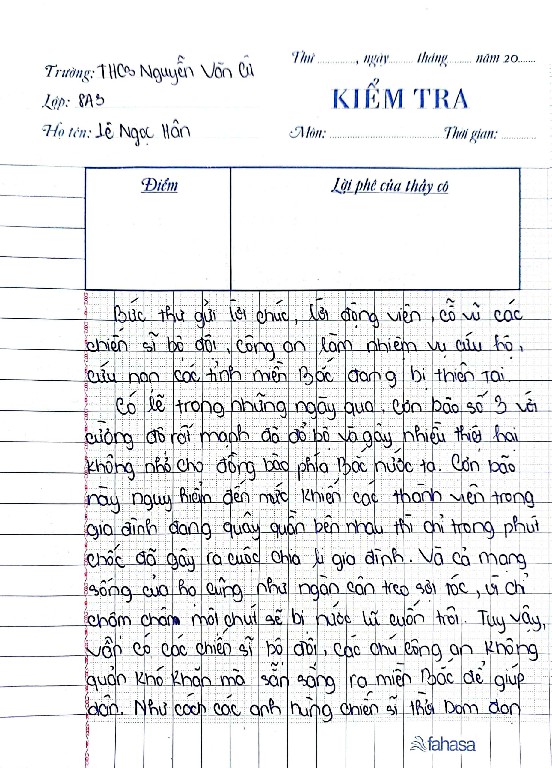 Thứ ............, ngày........ tháng ........ năm 20......
Trường: THCS Nguyễn Văn Cừ
Lớp: 8A3
KIỂM TRA
Họ tên: Lê Ngọc Hân
Môn: ........................ Thời gian: ............
Điểm
Lời phê của thầy cô
Bức thư gửi lời chúc, lời động viên, cỗ vũ các
chiến sĩ bộ đội, công an làm nhiệm vụ cứu hộ,
cứu nạn các tỉnh miền Bắc đang bị thiên tai.
Có lẽ trong những ngày qua, cơn bão số 3 với
cường độ rất mạnh đã đổ bộ và gây nhiều thiệt hại
không nhỏ cho đồng bào phía Bắc nước ta. Cơn bão
này nguy hiểm đến mức khiến các thành viên trong
gia đình đang quây quần bên nhau thì chỉ trong phút
chốc đã gây ra cuộc chia li gia đình. Và cả mạng
sống của họ cũng như ngàn cân treo sợi tóc, vì chỉ
chậm chân một chút sẽ bị nước lũ cuốn trôi. Tuy vậy,
vẫn có các chiến sĩ bộ đội, các chú công an không
quản khó khăn mà sẵn sàng ra miền Bắc để giúp
dân. Như cách các anh hùng chiến sĩ thời bom đạn
fahasa